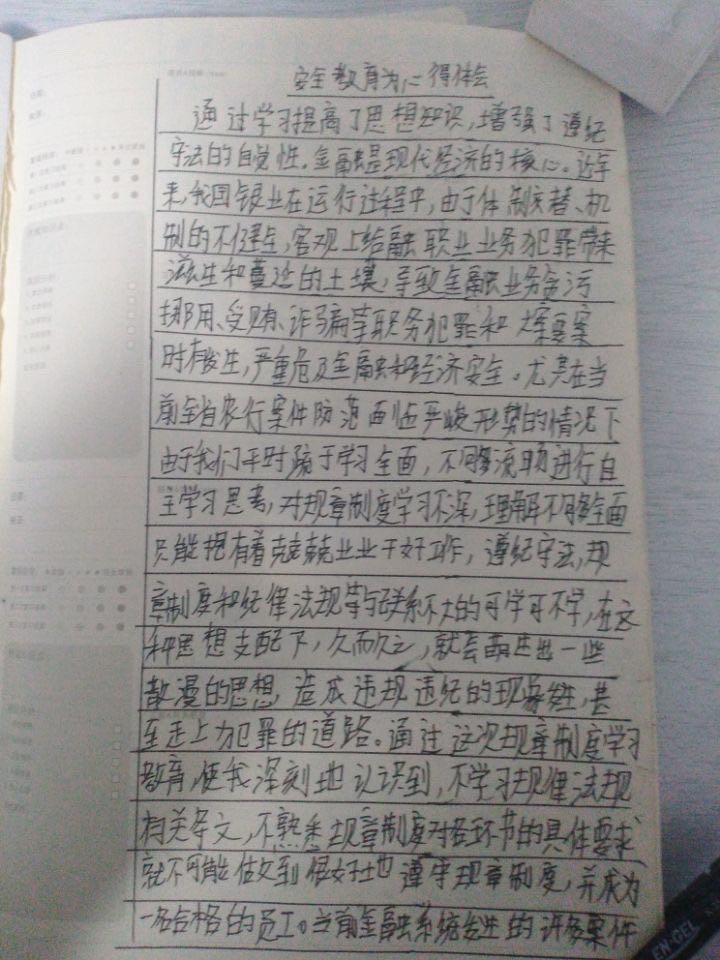 安全教育为心得体会
通过学习提高了思想知识,增强了遵纪
守法的自觉性。金融是现代经济的核心。近年
来,我国银业在运行过程中,由于体制交替、机
制的不健全,客观上给融职业业务犯罪带来
滋生和蔓延的土壤,导致金融业务贪污
挪用、受贿、诈骗等职务犯罪和大案要案
时有发生,严重危及金融和经济安全。尤其在当
前全省农行案件防范面临严峻形势的情况下
由于我们平时疏于学习全面,不够进行自
主学习思考,对规章制度学习不深,理解不够全面
只能抱有着克克兢业业干好工作,遵纪守法,规
章制度和纪律法规等与联系不大的可学可不学,在这
种思想支配下,久而久之,就会萌生出一些
散漫的思想,造成违规违纪的现象发生,甚
至走上犯罪的道路。通过这次规章制度学习
教育,使我深刻地认识到,不学习规律法规
相关条文,不熟悉规章制度对各环节的具体要求
就不可能做到很好地遵守规章制度,并成为
一名合格的员工。当前金融系统发生的许多案件
EN-GEL